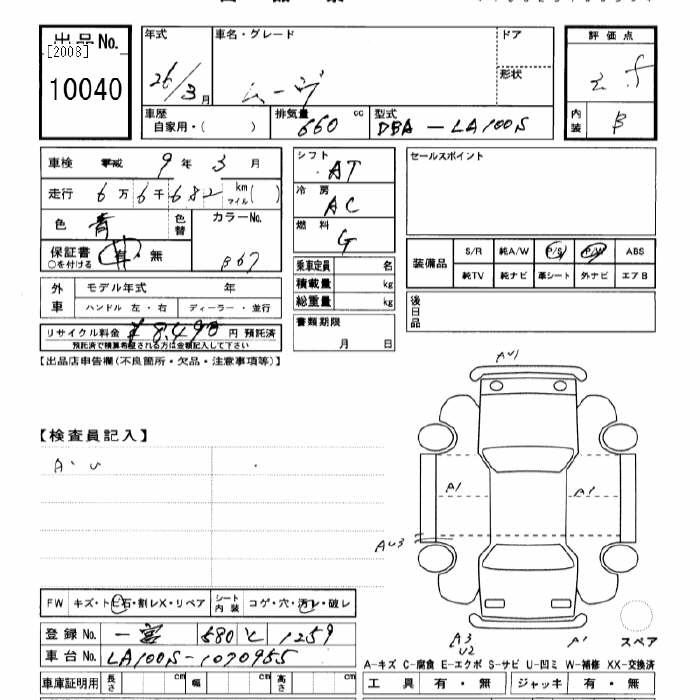 出品No.
[2003]
10040
年式
26/3月
車名・グレード
ムーヴ
ドア
形状
評価点
内装
B
車歴
自家用・( )
排気量
660 cc
型式
DBA-LA100S
車検 平成 9年 3月
走行 6万6千682 km マイル( )
色 青
色替
カラーNo.
B67
保証書
○を付ける
有・無
外車
モデル年式 年
ハンドル 左・右
ディーラー・並行
リサイクル料金 ¥8,490 円 預託済
預託済で積算希望される方は金額記入して下さい
シフト
AT
冷房
AC
燃料
G
乗車定員 名
積載量 kg
総重量 kg
書類期限
月 日
セールスポイント
装備品
S/R 純A/W P/S P/W ABS
純TV 純ナビ 革シート 外ナビ エアB
後日品
【出品店申告欄(不良箇所・欠品・注意事項等)】
【検査員記入】
A・U
AU1
A1
A1
AU3
A3
U2
A1
スペア
FW キズ・トビ石・割レX・リペア
シート内装 コゲ・穴・汚レ・破レ
登録No. 一宮 580 と 1259
車台No. LA100S-1070955
車庫証明用 長さ cm 幅 cm 高さ cm
A-キズ C-腐食 E-エクボ S-サビ U-凹ミ W-補修 XX-交換済
工具 有・無 ジャッキ 有・無